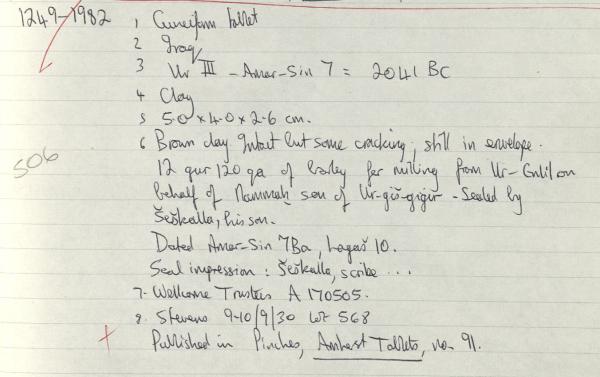 1249-1982
1 Cuneiform tablet
2 Iraq
3 Ur III - Amar-Sin 7 = 2041 BC
4 Clay
5 5.0 x 4.0 x 2.6 cm.
506
6 Brown clay Intact but some cracking, still in envelope.
12 gur 120 qa of barley for milling from Ur-Enlil on
behalf of Nammah son of Ur-giš-gigir - Sealed by
Šeškalla, his son.
Dated Amar-Sin 7Ba, Lagaš 10.
Seal impression: Šeškalla, scribe ...
7. Wellcome Trustees A 170505.
8. Stevens 9-10/9/30 Lot 568
Published in Pinches, Amherst Tablets, no. 91.